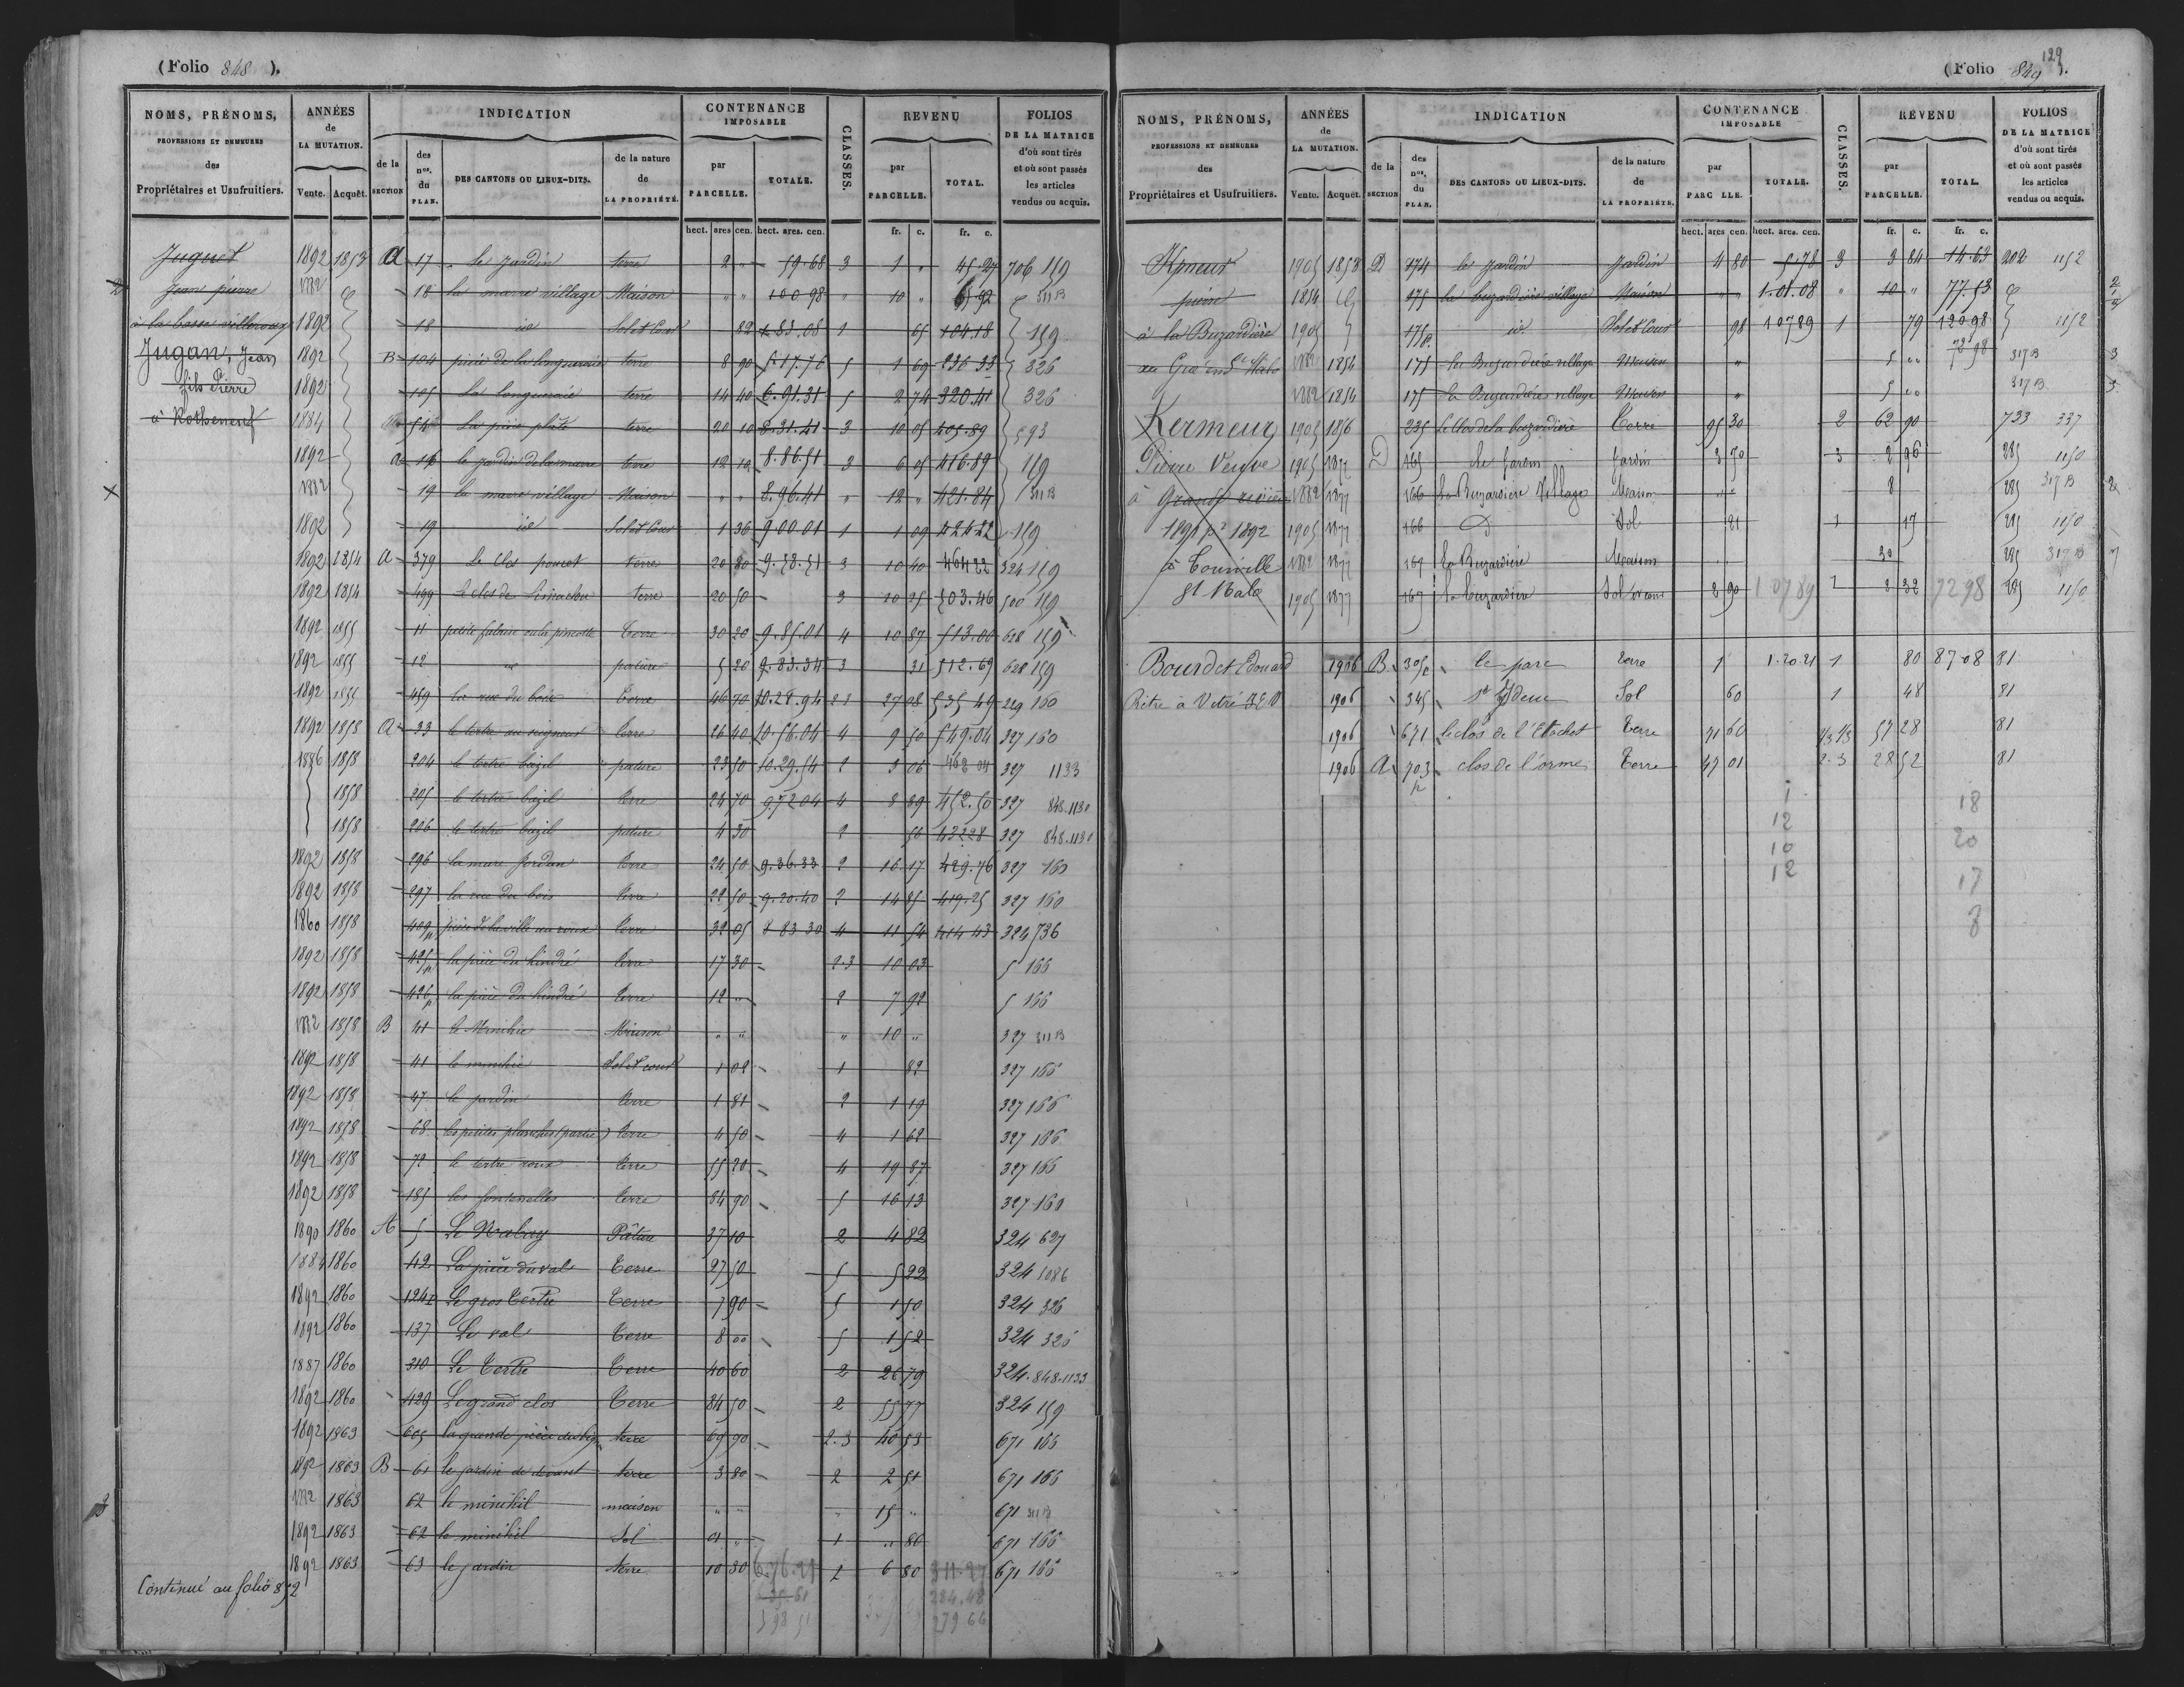 (Folio 848 ).
NOMS, PRÉNOMS, PROFESSIONS ET DEMEURES des Propriétaires et Usufruitiers.
ANNÉES de LA MUTATION. Vente. Acquêt.
INDICATION
de la SECTION
des nos. du PLAN.
DES CANTONS OU LIEUX-DITS.
de la nature de LA PROPRIÉTÉ.
CONTENANCE IMPOSABLE
par PARCELLE. TOTALE.
hect. ares cen. hect. ares. cen.
CLASSES.
REVENU
par PARCELLE. TOTAL.
fr. c. fr. c.
FOLIOS DE LA MATRICE d'où sont tirés et où sont passés les articles vendus ou acquis.
Juguet
Jean pierre
Jugan, Jean
fils Pierre
à Rotheneuf
1892 1853 A 17 le jardin terre 2 " 59.68 3 1 " 45.27 706 159
1882 18 la marre village Maison " " 100 98 " 10 " 311 B
1892 18 id Sol et Cour 82 1.83.08 1 65 104.18 159
1892 B 104 terre 8 90 5.17.76 5 1 69 236 33 326
1892 105 La longueraie terre 14 40 6.91.31 5 2 74 320.41 326
1884 terre 20 10 8.31.41 3 10 05 405.89 593
1892 a 16 le jardin de la marre terre 12 10 8.86.51 3 6 05 416.89 159
1882 19 la marre village Maison " " 8.96.41 " 12 " 421.84 311 B
1892 19 id Sol et Cour 1 36 9 00 01 1 1 09 424.22 159
1892 1854 A 379 Le Clos poucet terre 20 80 9.58.51 3 10 40 464 22 324 159
1892 1854 499 terre 20 50 3 10 25 503.46 500 159
1892 1855 11 terre 30 20 9.85.01 4 10 87 513.00 628 159
1892 1855 12 pature 5 20 9.83.34 3 31 512.69 628 159
1892 1855 459 la rue du bois terre 46 70 10.28.94 2 3 27 08 535 49 229 160
1892 1858 A 33 le tertre au seigneur terre 26 40 10.56.04 4 9 50 549.04 327 160
1886 1858 204 le tertre bazil pature 23 50 10.29.54 2 3 06 468 04 327 1133
1858 205 le tertre bazil terre 24 70 9.72 04 4 8 89 452.50 327 848.1130
1858 206 le tertre bazil pature 4 30 2 56 432 28 327 848.1130
1892 1858 296 la mare Jordan terre 24 50 9.36.33 2 16 17 429.76 327 160
1892 1858 297 la rue du bois terre 22 50 9.20.40 2 14 85 419.25 327 160
1860 1858 409 p terre 32 05 8 83 30 4 11 54 414 43 324 736
1892 1858 425 p la pièce du hindré terre 17 30 2.3 10 03 5 166
1892 1858 426 p la pièce du hindré terre 12 " 2 7 92 5 166
1882 1858 B 41 le Minihic Maison " " " 10 " 327 311 B
1892 1858 41 le minihic Sol et cour 1 02 1 82 327 166
1892 1858 47 le jardin terre 1 81 2 1 19 327 166
1892 1858 68 les petites planches (partie) terre 4 50 4 1 62 327 166
1892 1858 72 le tertre roux terre 55 20 4 19 87 327 166
1892 1858 185 les fontenelles terre 84 90 5 16 13 327 160
1890 1860 A 5 Pâture 37 10 2 4 82 324 627
1884 1860 42 La pièce du val Terre 27 50 5 5 22 324 1086
1892 1860 124 Le gros Tertre Terre 7 90 5 1 50 324 326
1892 1860 137 Le val Terre 8 00 5 1 52 324 326
1887 1860 310 Le Tertre Terre 40 60 2 26 79 324.848.1133
1892 1860 429 Le grand clos Terre 84 50 2 55 77 324 159
1892 1863 605 la grande pièce terre 69 90 2.3 40 53 671 166
1892 1863 B 61 le jardin de devant terre 3 80 2 2 51 671 166
1882 1863 62 le minihil maison " " 15 " 671 311 B
1892 1863 62 le minihil Sol 01 " 1 " 80 671 166
1892 1863 63 le jardin terre 10 30 6.76.29 2 6 80 311.27 671 166
284.48
279 66
Continué au folio 892
129
(Folio 849 ).
NOMS, PRÉNOMS, PROFESSIONS ET DEMEURES des Propriétaires et Usufruitiers.
ANNÉES de LA MUTATION. Vente. Acquêt.
INDICATION
de la SECTION
des nos. du PLAN.
DES CANTONS OU LIEUX-DITS.
de la nature de LA PROPRIÉTÉ.
CONTENANCE IMPOSABLE
par PARC LLE. TOTALE.
hect. ares cen. hect. ares. cen.
CLASSES.
REVENU
par PARCELLE. TOTAL.
fr. c. fr. c.
FOLIOS DE LA MATRICE d'où sont tirés et où sont passés les articles vendus ou acquis.
Kmeur
pierre
à la Buzardière
Kermeur
Pierre Veuve
à Grande rivière
1891 pr 1892
à Tourville
St Malo
1905 1853 D 174 le jardin Jardin 4 80 5.78 3 3 84 14.63 202 1152
1854 175 la buzardière village Maison " " 1.01.08 " 10 " 77.53
1905 175 p. id Sol et Cour 98 1 07 89 1 79 120 98 1152
1882 1854 175 la Buzardière village Maison " 5 " 72 98 317 B
1882 1854 175 la Buzardière village Maison " 5 " 317 B
1905 1856 235 Le Clos de la buzardière Terre 95 30 2 62 90 733 337
1905 1877 D 165 Le Jardin Jardin 3 70 3 2 96 285 1150
1882 1877 166 La Buzardière Village Maison " " 8 285 317 B
1905 1877 166 D Sol 21 1 17 285 1150
1882 1877 167 La Buzardière Maison 30 285 317 B
1905 1877 167 La buzardière Sol et cour 2 90 1 07 89 1 2 32 72 98 285 1150
Bourdet Edouard
Prêtre à Vitré I&V
1906 B 305 p le parc terre 1 1.20.21 1 80 87 08 81
1906 345 Idem Sol 60 1 48 81
1906 671 le clos de l'Etochet Terre 71 60 57 28 81
1906 A 703 p clos de l'orme Terre 47 01 2.3 28 52 81
1 18
12 20
10 17
12 8